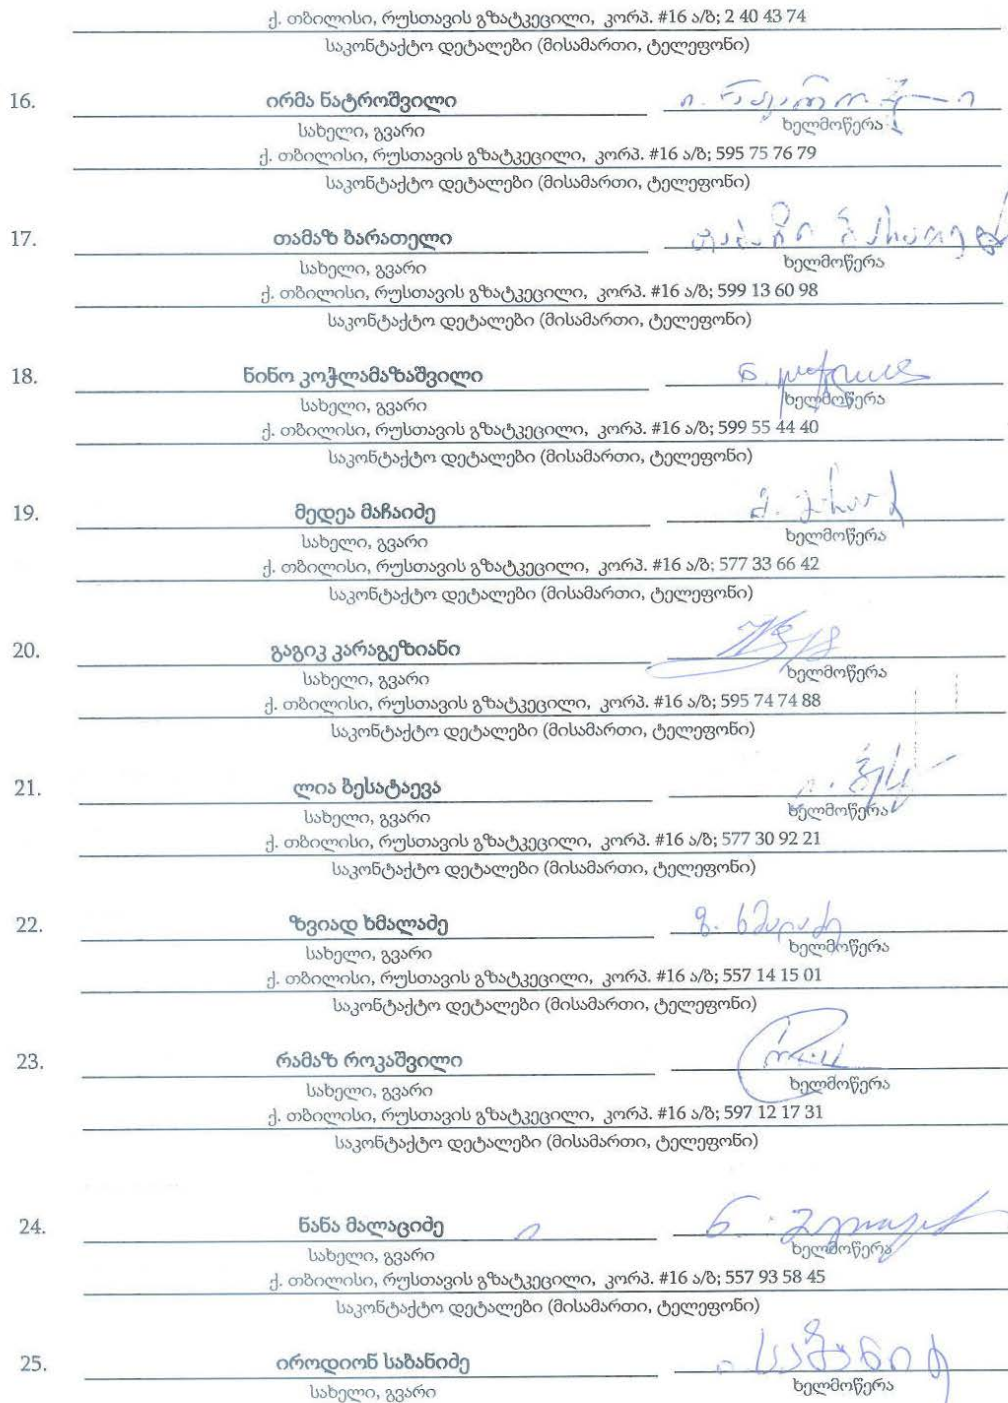 ქ. თბილისი, რუსთავის გზატკეცილი, კორპ. #16 ა/ბ; 2 40 43 74
საკონტაქტო დეტალები (მისამართი, ტელეფონი)
16. ირმა ნატროშვილი
სახელი, გვარი ხელმოწერა
ქ. თბილისი, რუსთავის გზატკეცილი, კორპ. #16 ა/ბ; 595 75 76 79
საკონტაქტო დეტალები (მისამართი, ტელეფონი)
17. თამაზ ბარათელი
სახელი, გვარი ხელმოწერა
ქ. თბილისი, რუსთავის გზატკეცილი, კორპ. #16 ა/ბ; 599 13 60 98
საკონტაქტო დეტალები (მისამართი, ტელეფონი)
18. ნინო კოჭლამაზაშვილი
სახელი, გვარი ხელმოწერა
ქ. თბილისი, რუსთავის გზატკეცილი, კორპ. #16 ა/ბ; 599 55 44 40
საკონტაქტო დეტალები (მისამართი, ტელეფონი)
19. მედეა მაჩაიძე
სახელი, გვარი ხელმოწერა
ქ. თბილისი, რუსთავის გზატკეცილი, კორპ. #16 ა/ბ; 577 33 66 42
საკონტაქტო დეტალები (მისამართი, ტელეფონი)
20. გაგიკ კარაგეზიანი
სახელი, გვარი ხელმოწერა
ქ. თბილისი, რუსთავის გზატკეცილი, კორპ. #16 ა/ბ; 595 74 74 88
საკონტაქტო დეტალები (მისამართი, ტელეფონი)
21. ლია ბესატაევა
სახელი, გვარი ხელმოწერა
ქ. თბილისი, რუსთავის გზატკეცილი, კორპ. #16 ა/ბ; 577 30 92 21
საკონტაქტო დეტალები (მისამართი, ტელეფონი)
22. ზვიად ხმალაძე ზ. ხმალაძე
სახელი, გვარი ხელმოწერა
ქ. თბილისი, რუსთავის გზატკეცილი, კორპ. #16 ა/ბ; 557 14 15 01
საკონტაქტო დეტალები (მისამართი, ტელეფონი)
23. რამაზ როკაშვილი
სახელი, გვარი ხელმოწერა
ქ. თბილისი, რუსთავის გზატკეცილი, კორპ. #16 ა/ბ; 597 12 17 31
საკონტაქტო დეტალები (მისამართი, ტელეფონი)
24. ნანა მალაციძე
სახელი, გვარი ხელმოწერა
ქ. თბილისი, რუსთავის გზატკეცილი, კორპ. #16 ა/ბ; 557 93 58 45
საკონტაქტო დეტალები (მისამართი, ტელეფონი)
25. იროდიონ საბანიძე
სახელი, გვარი ხელმოწერა